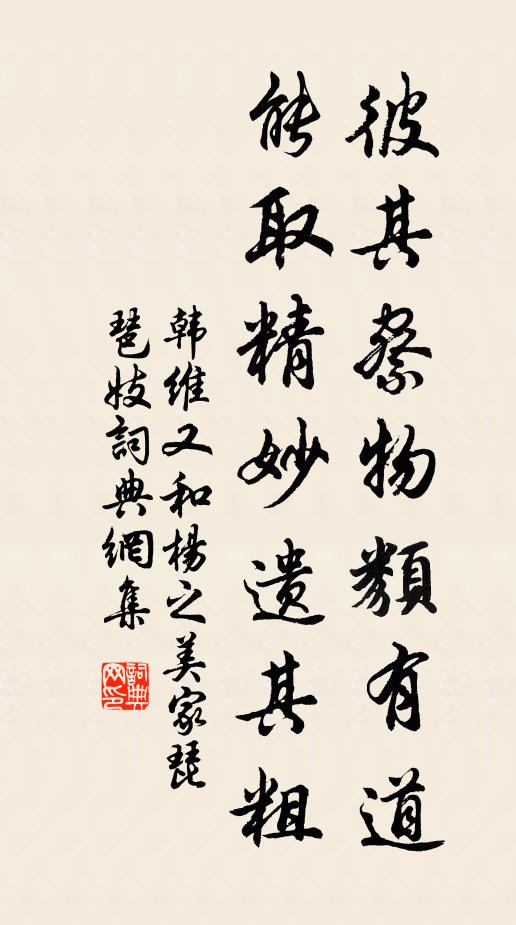 彼其察物類有道
能取精妙遺其粗
韩維又和楊之美家琵
琶妓詞典網集
詞典网印